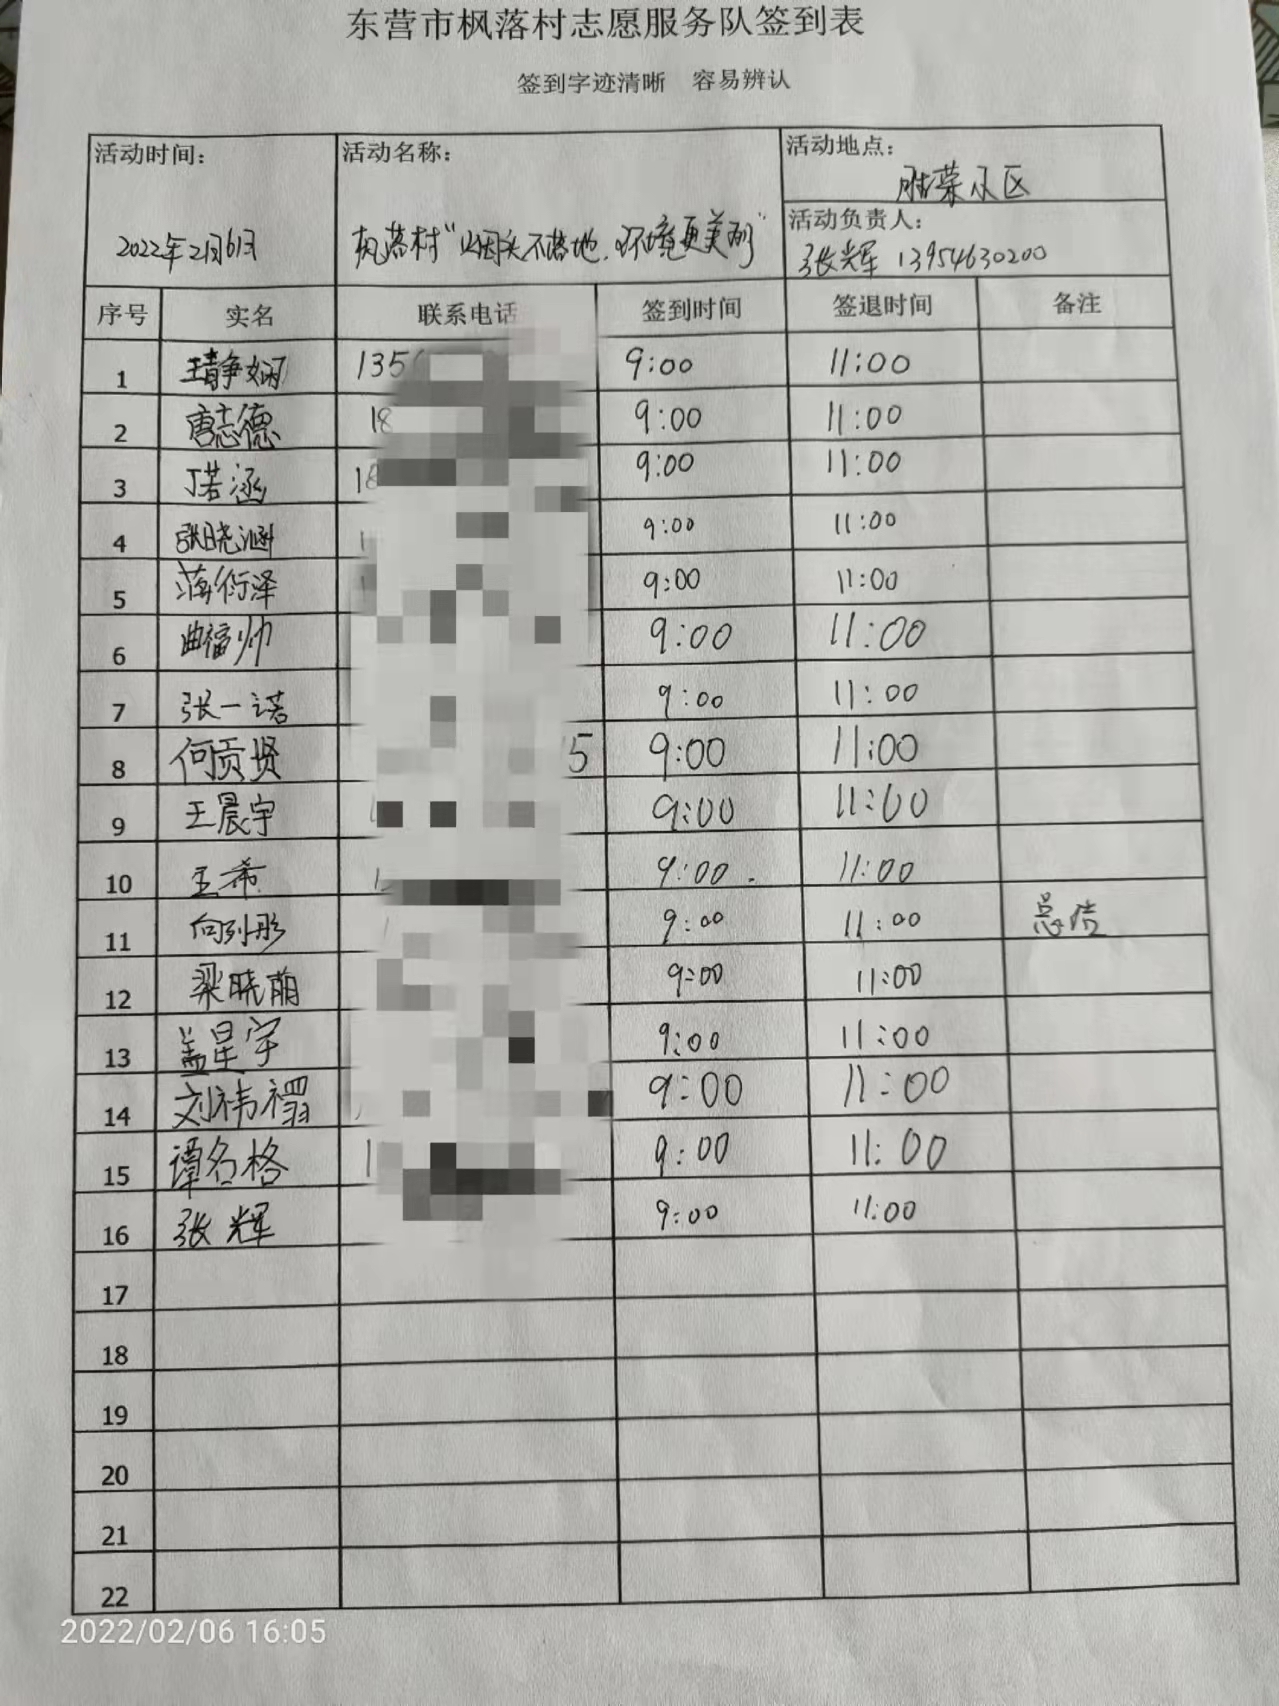 东营市枫落村志愿服务队签到表
签到字迹清晰 容易辨认
活动时间: 活动名称: 活动地点:
胜荣小区
2022年2月6日 枫落村“烟头不落地,环境更美丽” 活动负责人:
张辉 13954630200
序号 实名 联系电话 签到时间 签退时间 备注
1 王静娴 135 9:00 11:00
2 唐志德 18 9:00 11:00
3 丁若涵 18 9:00 11:00
4 张晓涵 1 9:00 11:00
5 蒋衍泽 9:00 11:00
6 曲福帅 9:00 11:00
7 张一诺 9:00 11:00
8 何贡贤 5 9:00 11:00
9 王晨宇 9:00 11:00
10 王希 1 9:00 11:00
11 向列彤 1 9:00 11:00
12 梁晓萌 9:00 11:00
13 盖星宇 9:00 11:00
14 刘祎 9:00 11:00
15 谭名格 1 9:00 11:00
16 张辉 9:00 11:00
17
18
19
20
21
22
2022/02/06 16:05